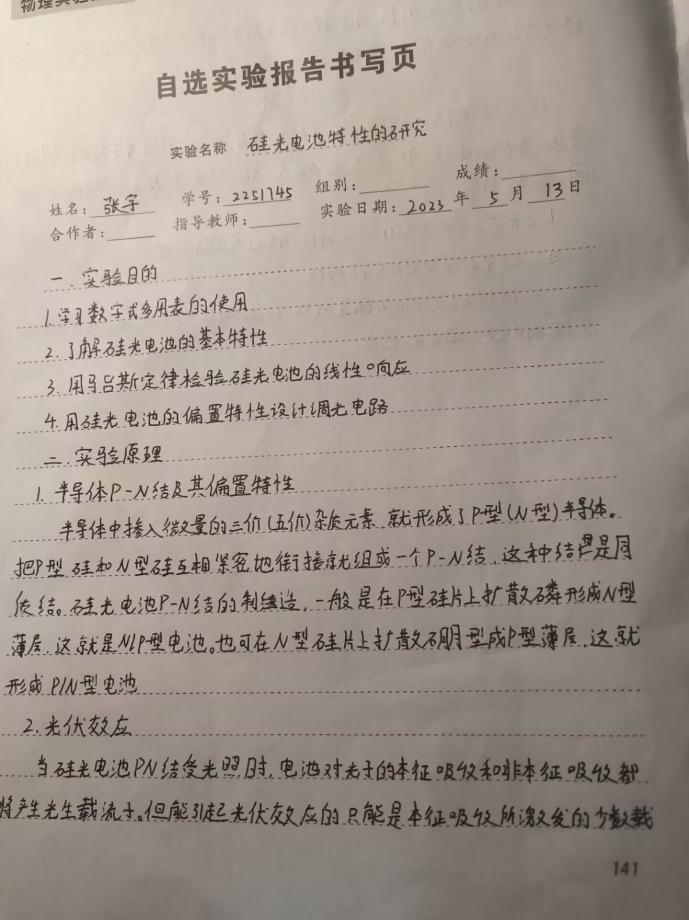 物理实验
自选实验报告书写页
实验名称 硅光电池特性的研究
姓名: 张宇 学号: 2251745 组别: 成绩:
合作者: 指导教师: 实验日期: 2023 年 5 月 13 日
一. 实验目的
1. 学习数字式多用表的使用
2. 了解硅光电池的基本特性
3. 用马吕斯定律检验硅光电池的线性响应
4. 用硅光电池的偏置特性设计调光电路
二. 实验原理
1. 半导体P-N结及其偏置特性
半导体中掺入微量的三价(五价)杂质元素, 就形成了P型(N型)半导体。
把P型硅和N型硅互相紧密地衔接就组成一个P-N结, 这种结是同
质结。硅光电池P-N结的制造, 一般是在P型硅片上扩散磷形成N型
薄层, 这就是N/P型电池。也可在N型硅片上扩散硼型成P型薄层, 这就
形成P/N型电池
2. 光伏效应
当硅光电池PN结受光照时, 电池对光子的本征吸收和非本征吸收都
将产生光生载流子。但能引起光伏效应的只能是本征吸收所激发的少数载
141